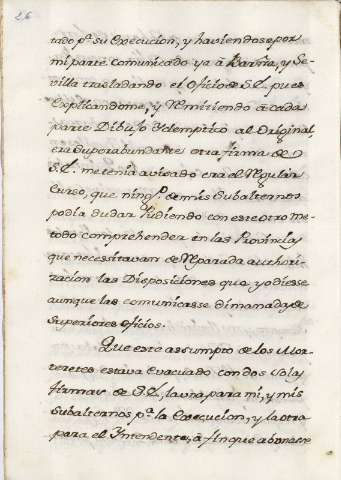 26
tado p.ª su Execucion, y haviendose por
mi parte comunicado ya à Barña, y Se-
villa trasladando el Oficio de S.E. pues
Explicandome, y Remitiendo à cada
parte Dibujo Ydemptico al Original,
era superabundante otra firma de
S.E. me tenia avisado era el Regular
Curso, que ning.º de mis Subalternos
podia dudar pudiendo con este otro me-
todo comprehender en las Provincias
que necesitavan de Reparada authori-
zacion las Disposiciones que yo diesse
aunque las comunicasse dimanadas de
Superiores oficios.
Que este assumpto de los Mor-
teretes estava Evacuado con dos solas
firmas de S.E., la una para mi, y mis
Subalternos p.ª la Execucion, y la otra
para el Yntendente, à fin que abonasse